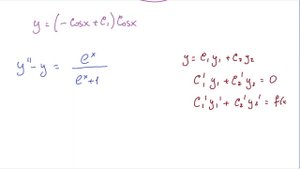 y = (-Cosx + C₁) Cosx
y'' - y = eˣ / (eˣ + 1)
y = C₁ y₁ + C₂ y₂
C₁' y₁ + C₂' y₂ = 0
C₁' y₁' + C₂' y₂' = f(x